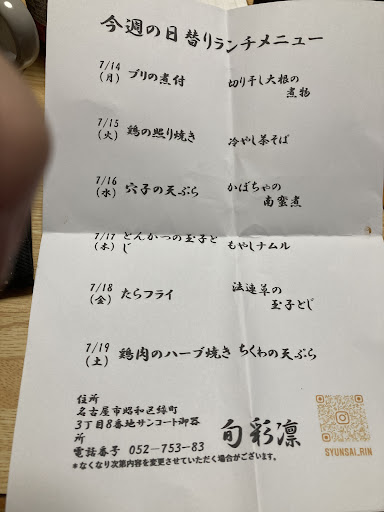 今週の日替りランチメニュー
7/14
(月) ブリの煮付 切り干し大根の
煮物
7/15
(火) 鶏の照り焼き 冷やし茶そば
7/16
(水) 穴子の天ぷら かぼちゃの
南蛮煮
7/17 とんかつの玉子と
(木) じ もやしナムル
7/18
(金) たらフライ 法連草の
玉子とじ
7/19
(土) 鶏肉のハーブ焼き ちくわの天ぷら
住所
名古屋市昭和区緑町
3丁目8番地サンコート御器
所
電話番子 052-753-83
*なくなり次第内容を変更させていただく場合がございます。
旬彩凛
SYUNSAI.RIN